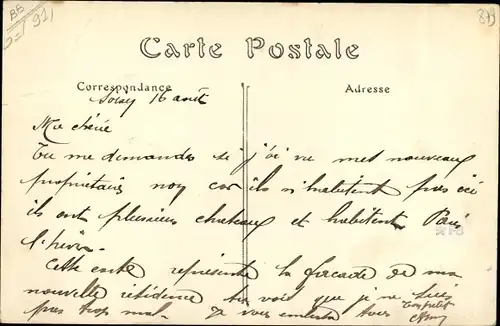 BB
91)
849
Carte Postale
Correspondance
Adresse
16 août
Ma chérie
Tu me demandes si j'ai vu mes nouveaux
propriétaires non car ils n'habitent pas ici
ils ont plusieurs chateaux et habitent Paris
l'hiver.
Cette carte représente la façade de ma
nouvelle résidence tu vois que je ne suis
pas trop mal. Je vous embrasse tous